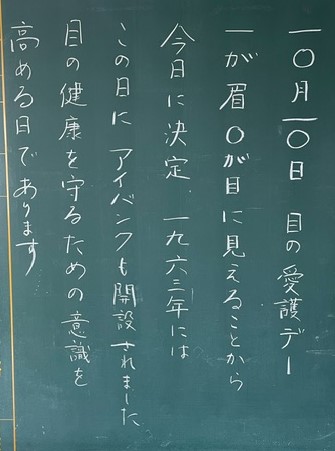 一〇月一〇日 目の愛護デー
一が眉〇が目に見えることから
今日に決定、一九六三年には
この日に アイバンクも開設されました
目の健康を守るための意識を
高める日であります